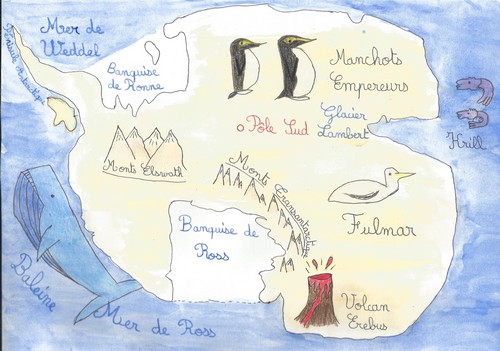 Mer de
Weddel
Péninsule Antarctique
Banquise
de Ronne
Manchots
Empereurs
Glacier
Lambert
Pôle Sud
Krill
Monts Elswath
Monts Transantarctique
Fulmar
Banquise de
Ross
Baleine
Mer de Ross
Volcan
Erebus